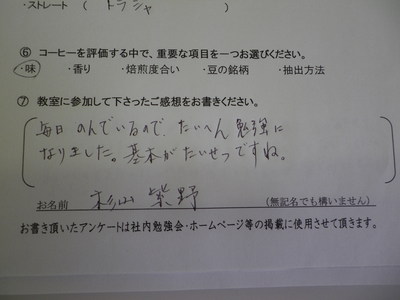 ・ストレート （ トラジャ ）
⑥ コーヒーを評価する中で、重要な項目を一つお選びください。
・味 ・香り ・焙煎度合い ・豆の銘柄 ・抽出方法
⑦ 教室に参加して下さったご感想をお書きください。
毎日 のんでいるので、たいへん 勉強に
なりました。基本がたいせつですね。
お名前 杉山 紫野 （無記名でも構いません）
お書き頂いたアンケートは社内勉強会・ホームページ等の掲載に使用させて頂きます。